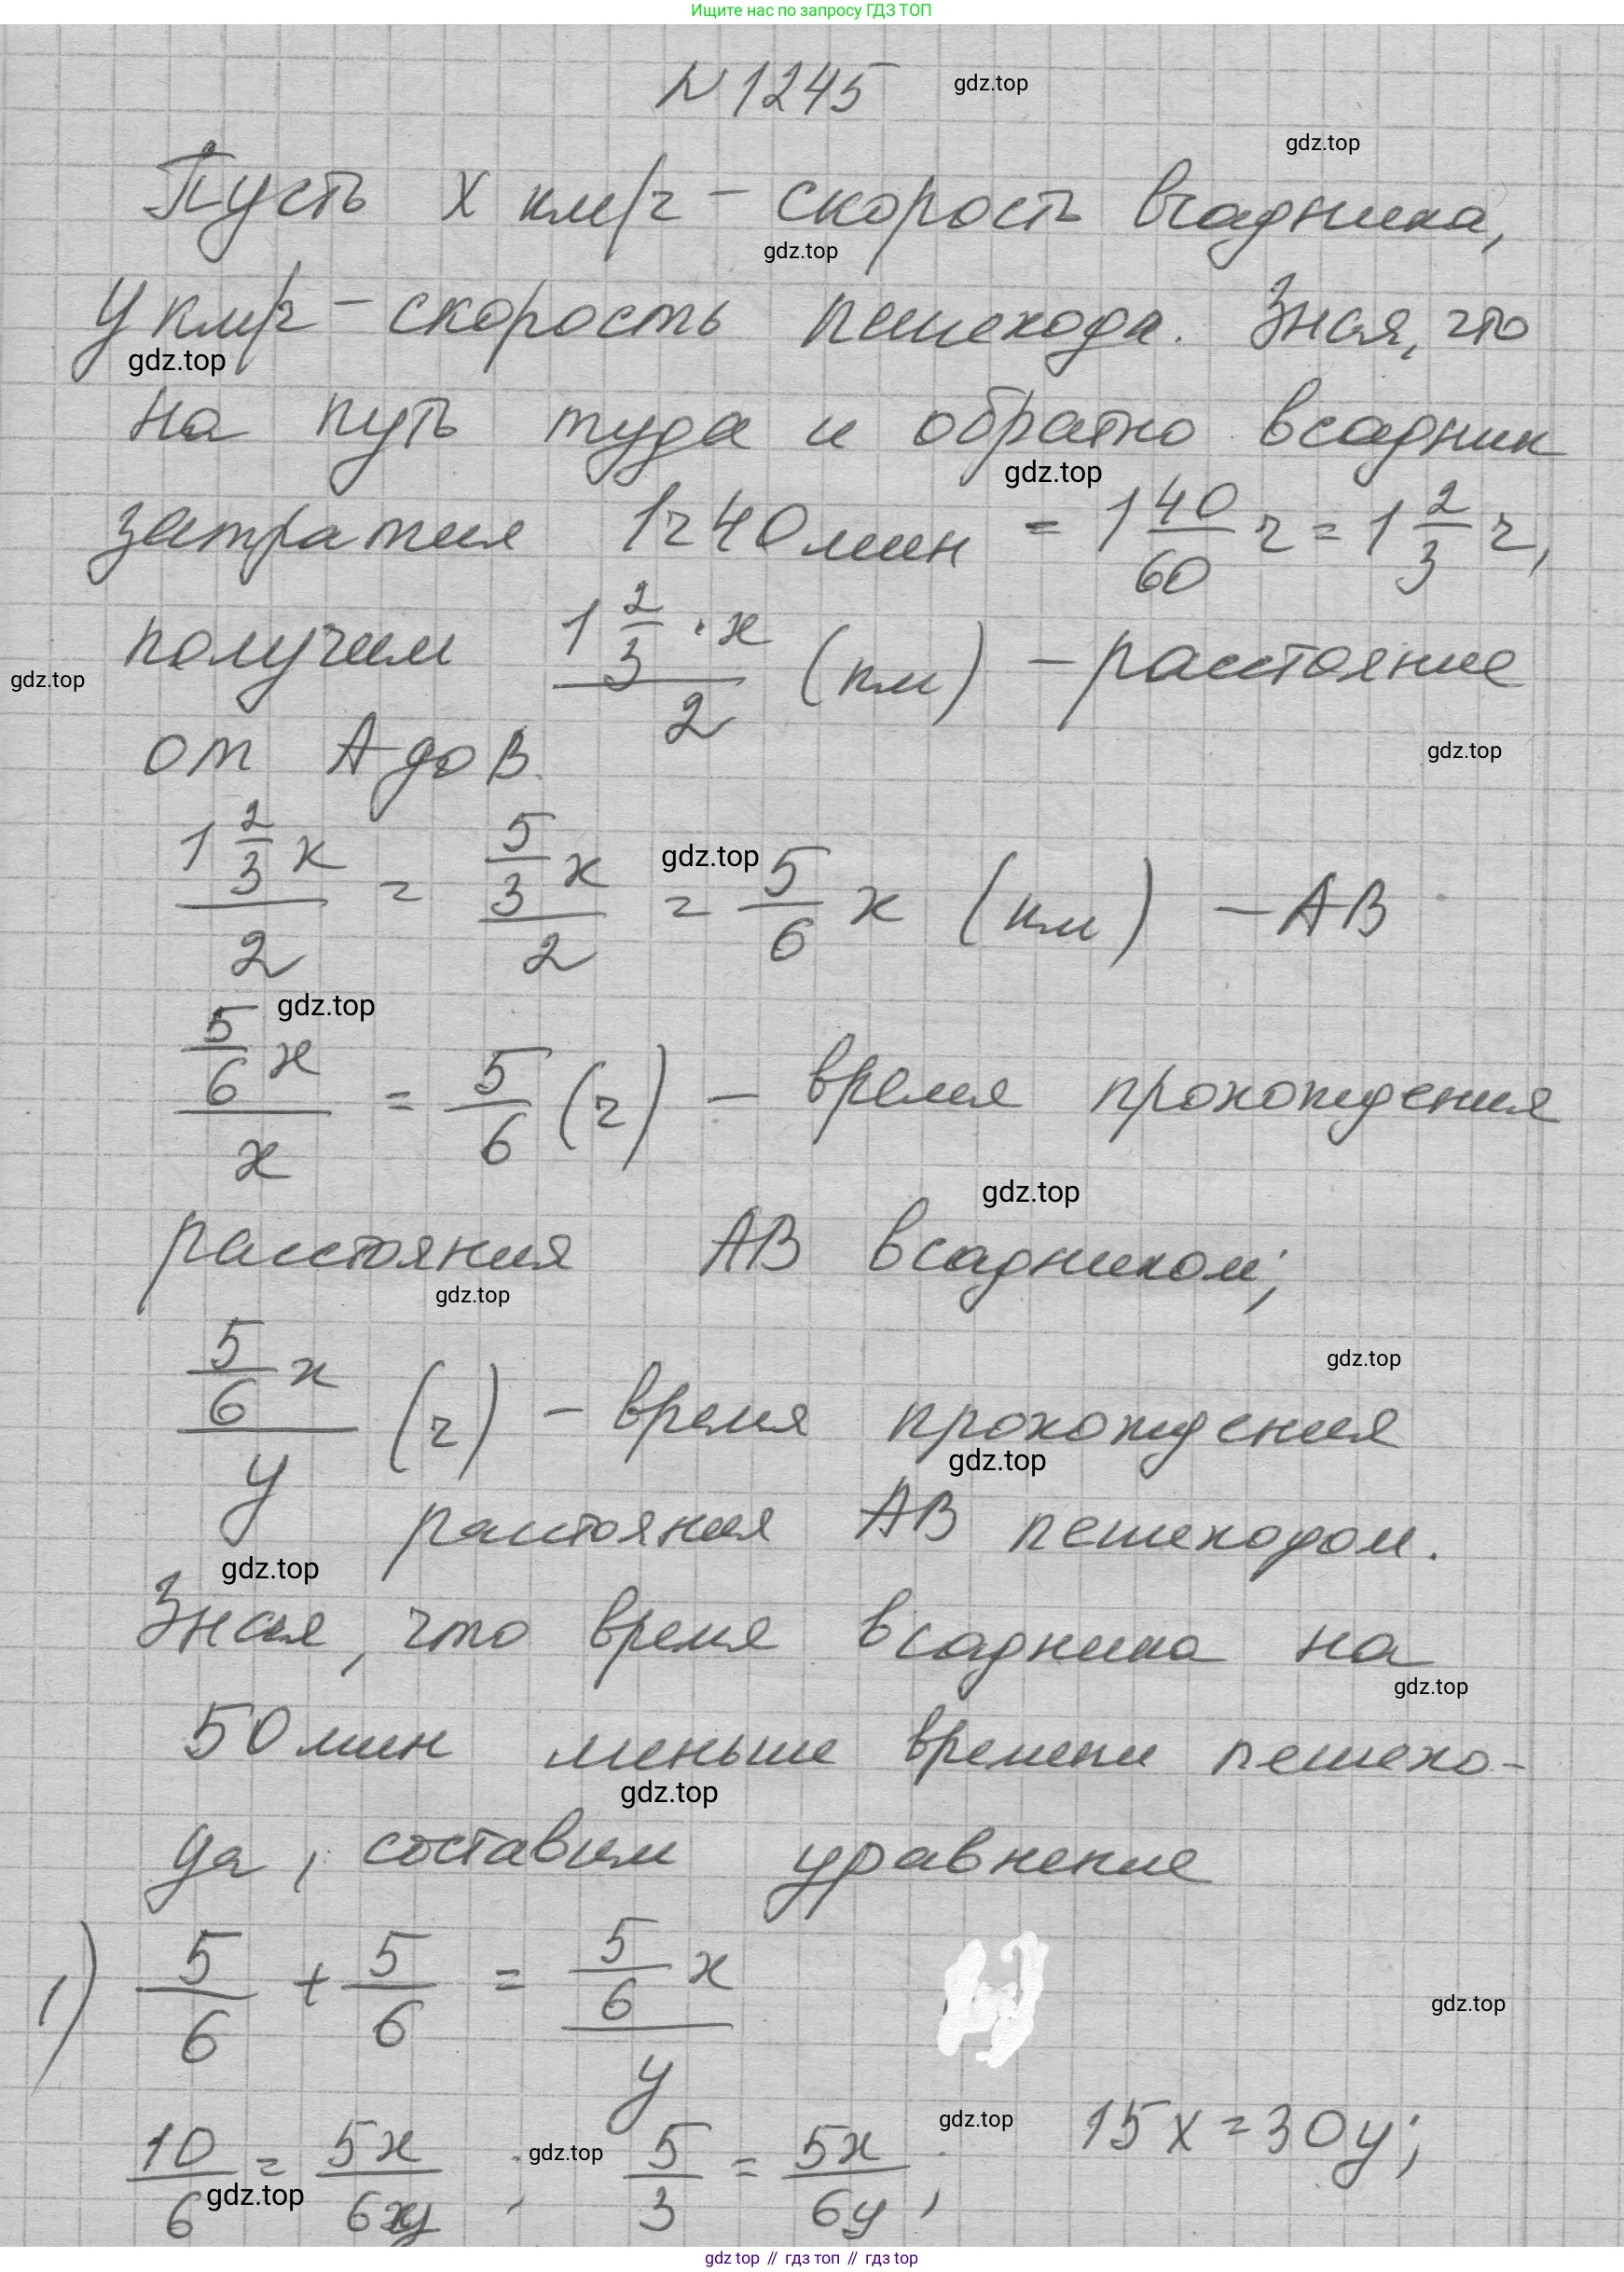 Ищите нас по запросу ГДЗ ТОП
N 1245 gdz.top
gdz.top
Пусть x км/ч – скорость всадника,
gdz.top
y км/ч – скорость пешехода. Зная, что
gdz.top
на путь туда и обратно всадник
gdz.top
затратил 1ч 40 мин = 1 40/60 ч = 1 2/3 ч,
получим (1 2/3 · x)/2 (км) – расстояние
gdz.top
от А до В.
gdz.top
(1 2/3 x)/2 = (5/3 x)/2 = 5/6 x (км) – АВ
gdz.top
gdz.top
(5/6 x)/x = 5/6 (ч) – время прохождения
gdz.top
расстояния АВ всадником;
gdz.top
gdz.top
(5/6 x)/y (ч) – время прохождения
gdz.top
расстояния АВ пешеходом.
gdz.top
Зная, что время всадника на
gdz.top
50 мин меньше времени пешехо-
gdz.top
да, составим уравнение
1) 5/6 + 5/6 = (5/6 x)/y
gdz.top
10/6 = 5x/6y ; 5/3 = 5x/6y ; 15x = 30y;
gdz.top
gdz.top
gdz.top
gdz top // гдз топ // gdz top